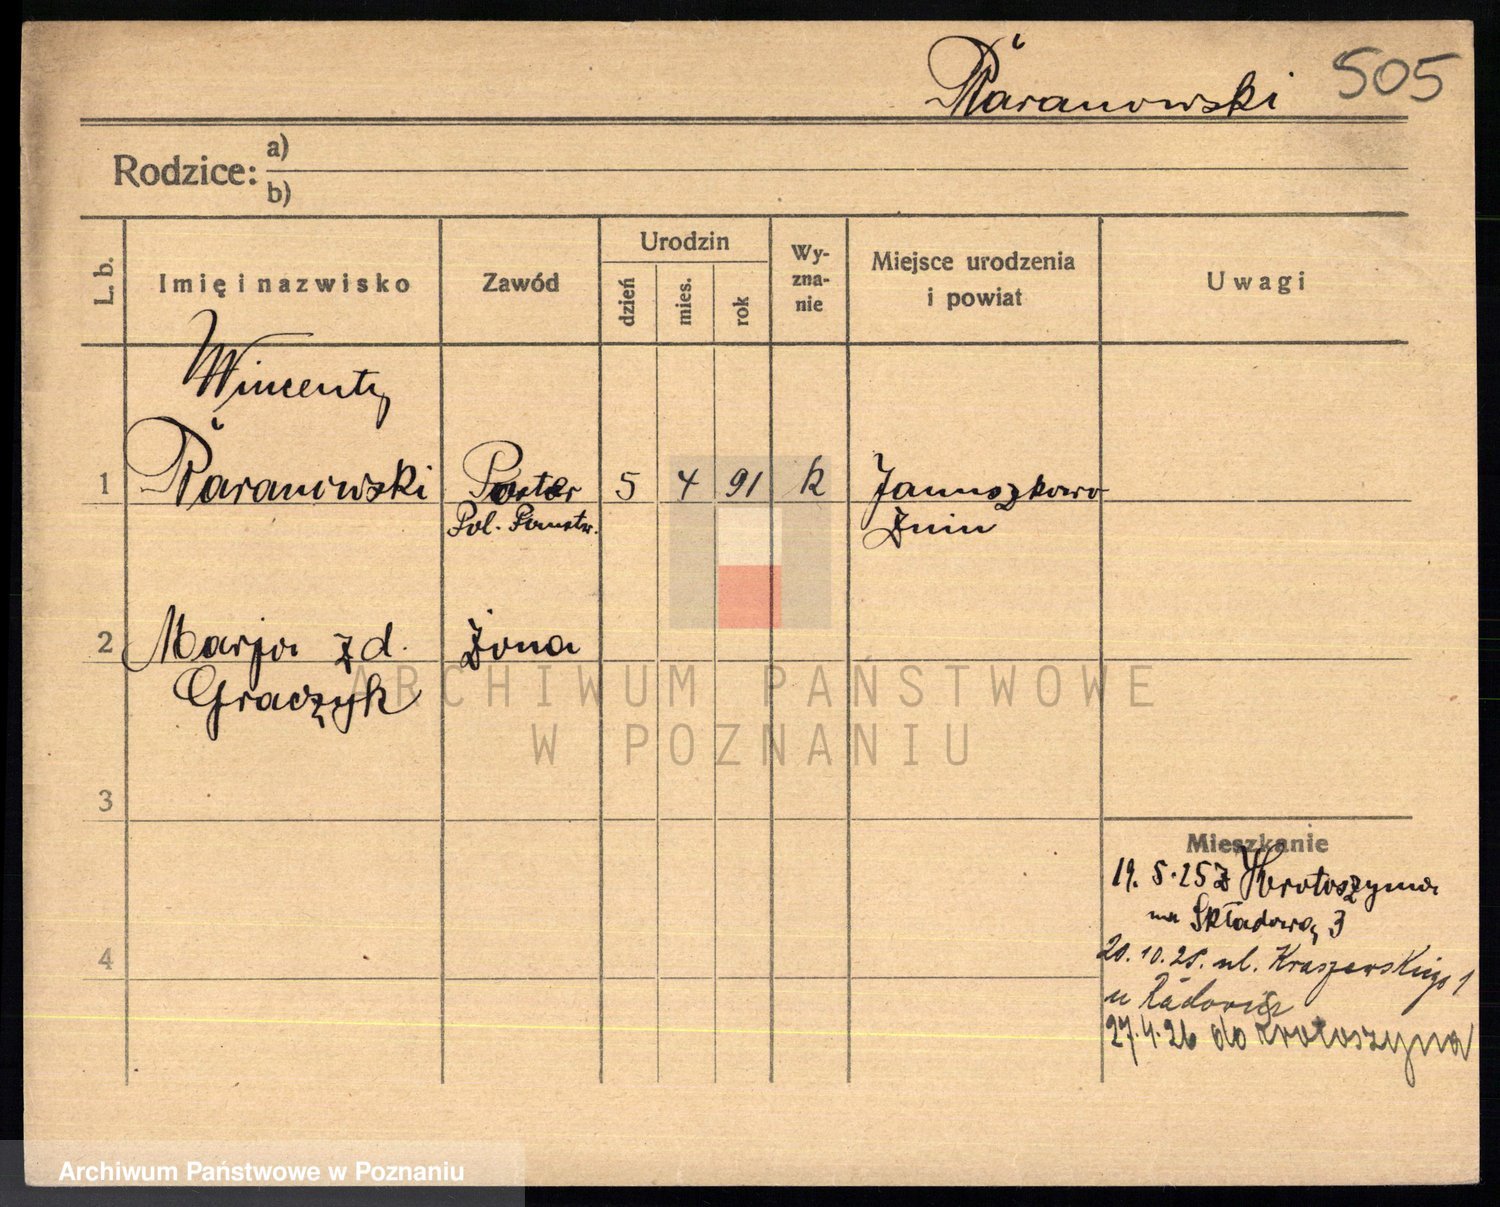 Paranowski 505
Rodzice: a)
b)
L. b.
Imię i nazwisko
Zawód
Urodzin
dzień
mies.
rok
Wy-
zna-
nie
Miejsce urodzenia
i powiat
Uwagi
Wincenty
1 Paranowski Poster 5 4 91 k Januszkowo
Pol. Państw. Żnin
2 Marja z d. Żona
Graczyk
3
4
Mieszkanie
19. 5. 25 z Krotoszyna
na Składową 3
20. 10. 25. ul. Kraszewskiego 1
u
27.4.26 do Krotoszyna
ARCHIWUM PAŃSTWOWE
W POZNANIU
Archiwum Państwowe w Poznaniu